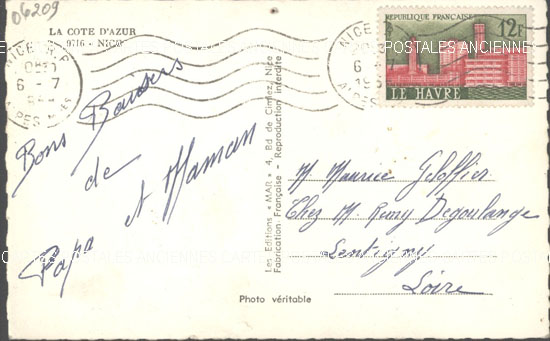 06209
LA COTE D'AZUR
9716 - NICE
NICE R.P.
6 - 7
Bons Baisers
de
Papa et Maman
Les Editions "MAR" 4, Bd de Cimiez, Nice
Fabrication Française - Reproduction interdite
Photo véritable
REPUBLIQUE FRANÇAISE
12F
LE HAVRE
NICE
6
M. Maurice
Chez M. Rémy Degoulange
Lentigny
Loire
POSTALES ANCIENNES
CARTES POSTALES ANCIENNES